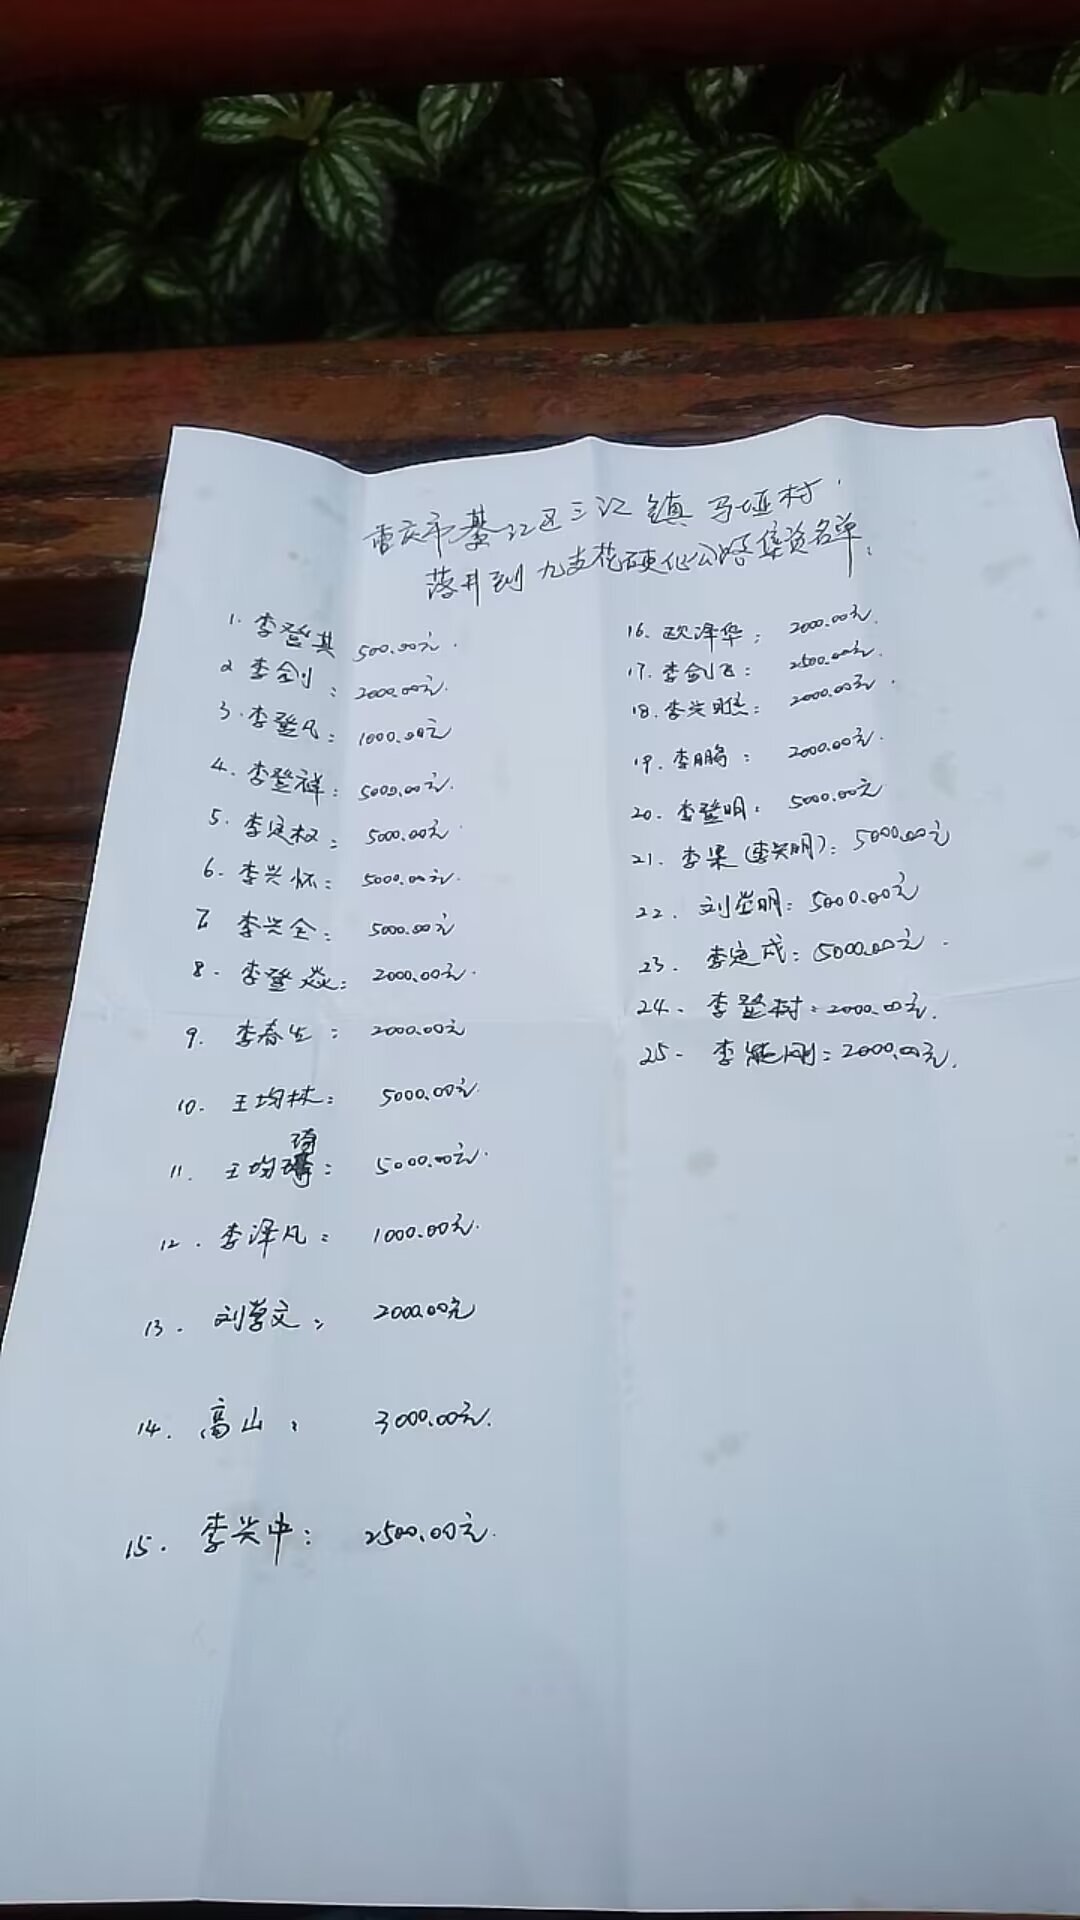 重庆市綦江区三江镇马垭村
落井到九支花硬化公路集资名单:
1. 李登其 500.00元.
2 李剑: 2000.00元.
3. 李登凡: 1000.00元
4. 李登祥: 5000.00元.
5. 李定权: 5000.00元
6. 李兴怀: 5000.00元.
7 李兴全: 5000.00元
8. 李登焱: 2000.00元.
9. 李春生: 2000.00元
10. 王均林: 5000.00元
11. 王均琦: 5000.00元.
12. 李泽凡: 1000.00元.
13. 刘学文: 2000.00元
14. 高山: 3000.00元.
15. 李兴中: 2500.00元.
16. 欧泽华: 2000.00元.
17. 李剑飞: 2500.00元.
18. 李兴旺: 2000.00元.
19. 李鹏: 2000.00元.
20. 李登明: 5000.00元
21. 李果(李兴明): 5000.00元
22. 刘学明: 5000.00元
23. 李定成: 5000.00元.
24. 李登树: 2000.00元.
25. 李能刚: 2000.00元.